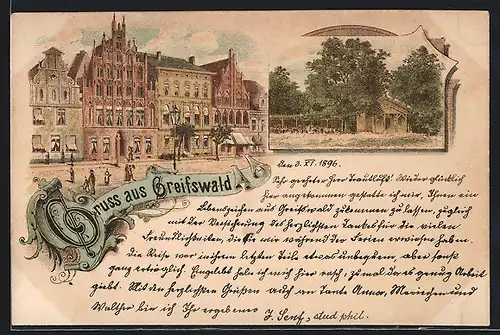 Gruss aus Greifswald
den 3. XI. 1896.
Sehr geehrter Herr Wieder glücklich
hier angekommen gestatte ich mir, Ihnen ein
Lebenszeichen aus Greifswald zukommen zu lassen, zugleich
mit der Versicherung des herzlichsten Dankes für die vielen
Freundlichkeiten, die Sie mir während der Ferien erwiesen haben.
Die Reise war im letzten Teile etwas unbequem, aber sonst
ganz erträglich. Eingelebt habe ich mich hier rasch, zumal da es genug Arbeit
giebt. Mit den herzlichsten Grüßen auch an Tante Anna, Mariechen und
Walther bin ich Ihr ergebener J. Senf, stud phil.